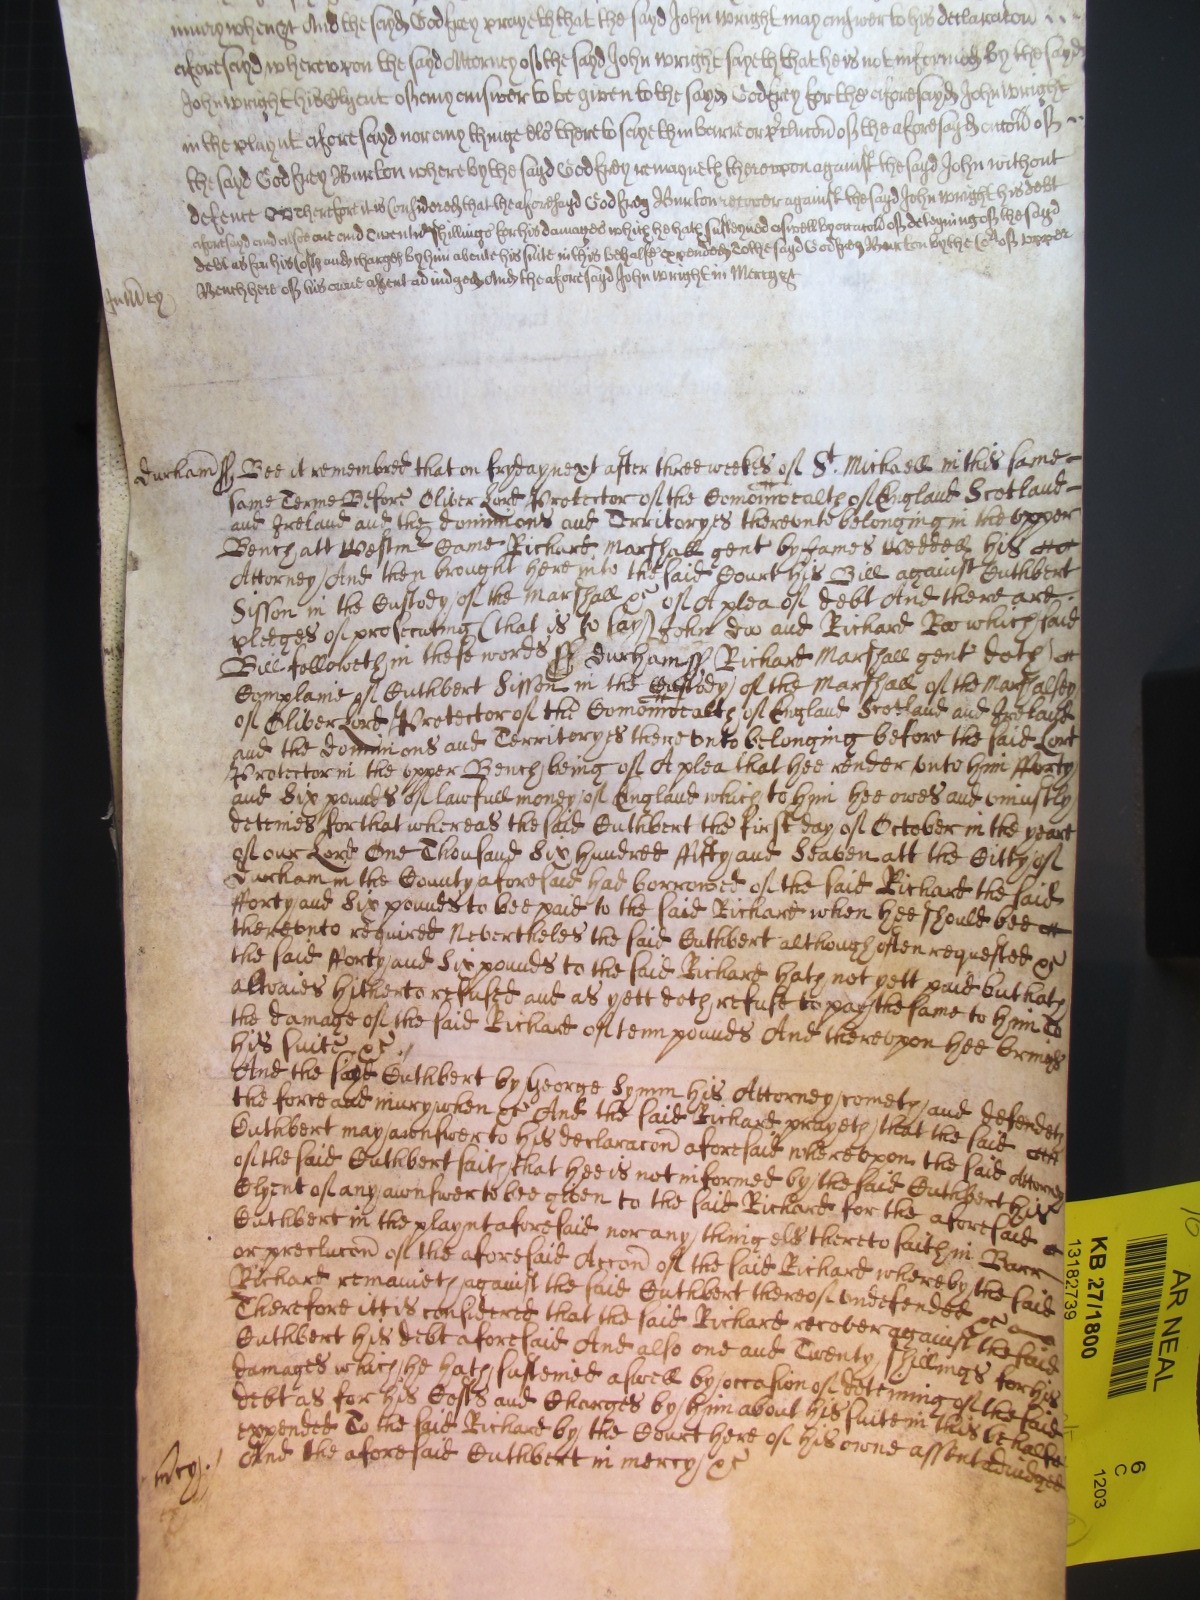 iniury when &c And the sayd Godfrey prayeth that the sayd John Wright may answer to his declaracon
aforesayd wherevpon the sayd Attorney of the sayd John Wright sayeth that he is not informed by the sayd
John Wright his Clyent of any answer to be given to the sayd Godfrey for the aforesayd John Wright
in the playnt aforesayd nor any thinge els thereto sayeth in barre or preclucon of the aforesayd accon of
the sayd Godfrey Burton whereby the sayd Godfrey remayneth therevpon against the sayd John without
defence &c Therefore it is Considered that the aforesayd Godfrey Burton recover against the sayd John Wright his debt
aforesayd and alsoe one and Twentie shillings for his damages which he hath susteyned aswell by occasion of deteyning of the sayd
debt as for his Costs and charges by him aboute his suite in this behalfe expended To the sayd Godfrey Burton by the Cort of vpper
Bench here of his owne assent adiudged And the aforesayd John Wright in Mercy &c
In Mercy
Durham ss Bee it remembred that on Fryday next after three weekes of St. Michaell in this same
same Terme Before Oliver Lord Protector of the Comonwealth of England Scotland
and Ireland and the dominions and Territoryes therevnto belonging in the vpper
Bench att Westmr Came Richard Marshall gent by James Weddell his
Attorney And then brought here into the said Court his Bill against Cuthbert
Sisson in the Custody of the Marshall &c of A plea of debt And there are
pledges of prosecuting (that is to say) John Doo and Richard Roo which said
Bill followeth in these words ss Durham ss Richard Marshall gent doth
Complaine of Cuthbert Sisson in the Custody of the Marshall of the Marshalsey
of Oliver Lord Protector of the Comonwealth of England Scotland and Ireland
and the dominions and Territoryes therevnto belonging before the said Lord
Protector in the vpper Bench being of A plea that hee render vnto him fforty
and Six pounds of lawfull money of England which to him hee owes and vniustly
deteines for that whereas the said Cuthbert the first day of October in the yeare
of our Lord One Thousand Six hundred ffifty and Seaven att the Citty of
Durham in the County aforesaid had borrowed of the said Richard the said
fforty and Six pounds to bee paid to the said Richard when hee should bee
therevnto required Nevertheles the said Cuthbert although often requested &c
the said fforty and Six pounds to the said Richard hath not yett paid but hath
allwaies hitherto refused and as yett doth refuse to pay the same to him To
the damage of the said Richard of tenn pounds And therevpon hee brings
his suite &c
And the said Cuthbert by George Symm his Attorney cometh and defendeth
the force and iniury when &c And the said Richard prayeth that the said
Cuthbert may aunswer to his declaracon aforesaid wherevpon the said Attorney
of the said Cuthbert saith that hee is not informed by the said Cuthbert his
Clyent of any aunswer to bee given to the said Richard for the aforesaid
Cuthbert in the playnt aforesaid nor any thing els thereto saith in Barr
or preclucon of the aforesaid Accon of the said Richard whereby the said
Richard remaineth against the said Cuthbert thereof vndefended &c
Therefore itt is considered that the said Richard recover against the said
Cuthbert his debt aforesaid And also one and Twenty shillings for his
damages which he hath susteined aswell by occasion of deteining of the said
debt as for his Costs and Charges by him about his suite in this behalfe
expended To the said Richard by the Court here of his owne assent adiudged
And the aforesaid Cuthbert in mercy &c
mercy
AR NEAL
KB 27/1800
13182739
6
C
1203